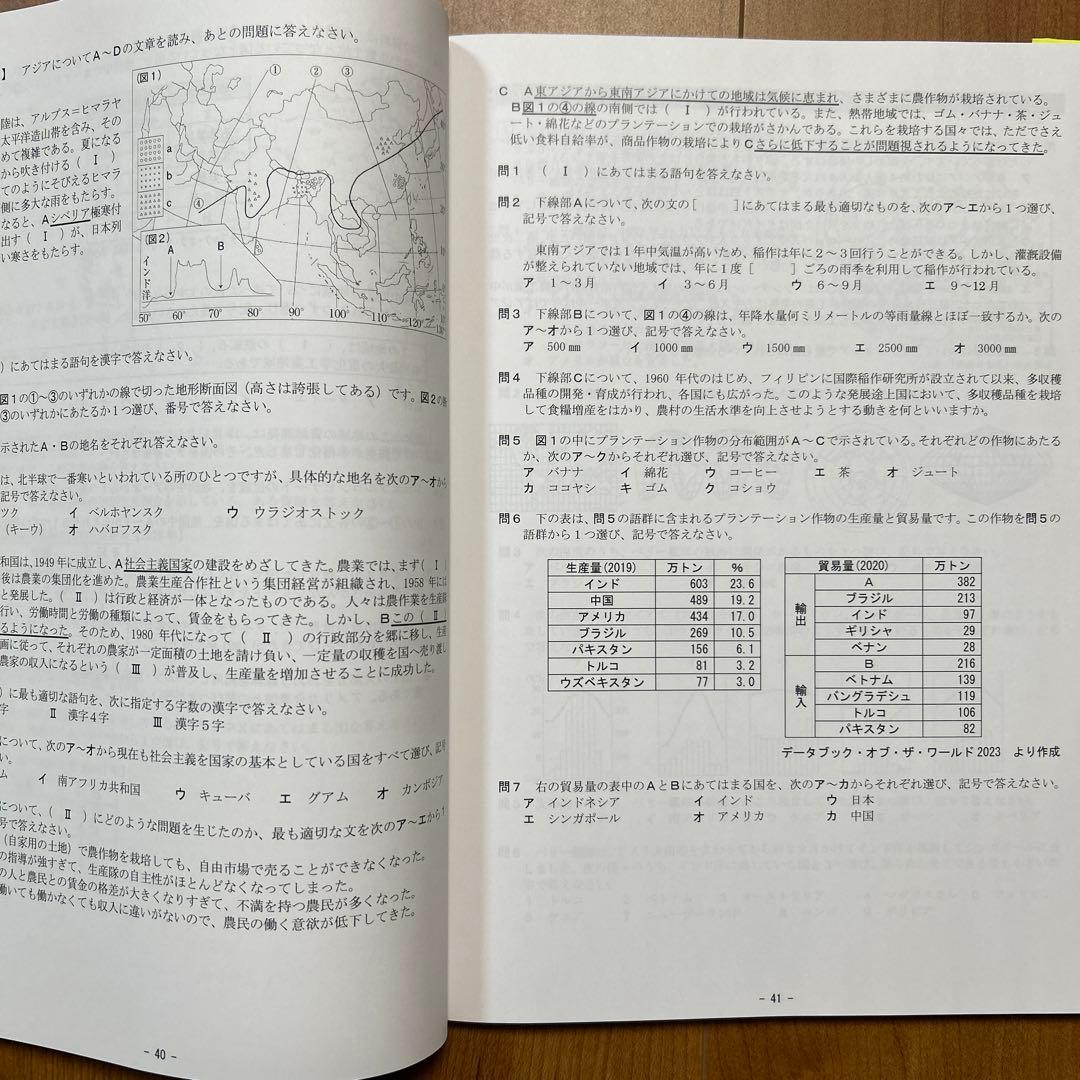 】 アジアについてA～Dの文章を読み、あとの問題に答えなさい。
陸は、アルプス＝ヒマラヤ
太平洋造山帯を含み、その
めて複雑である。夏になる
から吹き付ける（ Ⅰ ）
てのようにそびえるヒマラ
側に多大な雨をもたらす。
なると、Aシベリア極寒付
出す（ Ⅰ ）が、日本列
い寒さをもたらす。
(図1)
① ② ③
a
b
c
④
(図2)
A B
インド洋
50° 60° 70° 80° 90° 100° 110° 120° 130°
）にあてはまる語句を漢字で答えなさい。
図1の①～③のいずれかの線で切った地形断面図（高さは誇張してある）です。図2の
③のいずれかにあたるか1つ選び、番号で答えなさい。
示されたA・Bの地名をそれぞれ答えなさい。
は、北半球で一番寒いといわれている所のひとつですが、具体的な地名を次のア～オから
記号で答えなさい。
ツク イ ベルホヤンスク ウ ウラジオストック
（キーウ） オ ハバロフスク
和国は、1949年に成立し、A社会主義国家の建設をめざしてきた。農業では、まず（ Ⅰ ）
後は農業の集団化を進めた。農業生産合作社という集団経営が組織され、1958年には
と発展した。（ Ⅱ ）は行政と経済が一体となったものである。人々は農作業を生産隊
行い、労働時間と労働の種類によって、賃金をもらってきた。しかし、Bこの（ Ⅱ ）
るようになった。そのため、1980年代になって（ Ⅱ ）の行政部分を郷に移し、生産
画に従って、それぞれの農家が一定面積の土地を請け負い、一定量の収穫を国へ売り渡し
農家の収入になるという（ Ⅲ ）が普及し、生産量を増加させることに成功した。
）に最も適切な語句を、次に指定する字数の漢字で答えなさい。
字 Ⅱ 漢字4字 Ⅲ 漢字5字
について、次のア～オから現在も社会主義を国家の基本としている国をすべて選び、記号
い。
ム イ 南アフリカ共和国 ウ キューバ エ グアム オ カンボジア
について、（ Ⅱ ）にどのような問題を生じたのか、最も適切な文を次のア～エから1
号で答えなさい。
（自家用の土地）で農作物を栽培しても、自由市場で売ることができなくなった。
の指導が強すぎて、生産隊の自主性がほとんどなくなってしまった。
の人と農民との賃金の格差が大きくなりすぎて、不満を持つ農民が多くなった。
働いても働かなくても収入に違いがないので、農民の働く意欲が低下してきた。
- 40 -
C A東アジアから東南アジアにかけての地域は気候に恵まれ、さまざまに農作物が栽培されている。
B図1の④の線の南側では（ Ⅰ ）が行われている。また、熱帯地域では、ゴム・バナナ・茶・ジュ
ート・綿花などのプランテーションでの栽培がさかんである。これらを栽培する国々では、ただでさえ
低い食料自給率が、商品作物の栽培によりCさらに低下することが問題視されるようになってきた。
問1 （ Ⅰ ）にあてはまる語句を答えなさい。
問2 下線部Aについて、次の文の［ ］にあてはまる最も適切なものを、次のア～エから1つ選び、
記号で答えなさい。
東南アジアでは1年中気温が高いため、稲作は年に2～3回行うことができる。しかし、灌漑設備
が整えられていない地域では、年に1度［ ］ごろの雨季を利用して稲作が行われている。
ア 1～3月 イ 3～6月 ウ 6～9月 エ 9～12月
問3 下線部Bについて、図1の④の線は、年降水量何ミリメートルの等雨量線とほぼ一致するか。次の
ア～オから1つ選び、記号で答えなさい。
ア 500㎜ イ 1000㎜ ウ 1500㎜ エ 2500㎜ オ 3000㎜
問4 下線部Cについて、1960年代のはじめ、フィリピンに国際稲作研究所が設立されて以来、多収穫
品種の開発・育成が行われ、各国にも広がった。このような発展途上国において、多収穫品種を栽培
して食糧増産をはかり、農村の生活水準を向上させようとする動きを何といいますか。
問5 図1の中にプランテーション作物の分布範囲がA～Cで示されている。それぞれどの作物にあたる
か、次のア～クからそれぞれ選び、記号で答えなさい。
ア バナナ イ 綿花 ウ コーヒー エ 茶 オ ジュート
カ ココヤシ キ ゴム ク コショウ
問6 下の表は、問5の語群に含まれるプランテーション作物の生産量と貿易量です。この作物を問5の
語群から1つ選び、記号で答えなさい。
生産量(2019) 万トン %
インド 603 23.6
中国 489 19.2
アメリカ 434 17.0
ブラジル 269 10.5
パキスタン 156 6.1
トルコ 81 3.2
ウズベキスタン 77 3.0
貿易量(2020) 万トン
輸出 A 382
ブラジル 213
インド 97
ギリシャ 29
ベナン 28
輸入 B 216
ベトナム 139
バングラデシュ 119
トルコ 106
パキスタン 82
データブック・オブ・ザ・ワールド2023 より作成
問7 右の貿易量の表中のAとBにあてはまる国を、次のア～カからそれぞれ選び、記号で答えなさい。
ア インドネシア イ インド ウ 日本
エ シンガポール オ アメリカ カ 中国
- 41 -